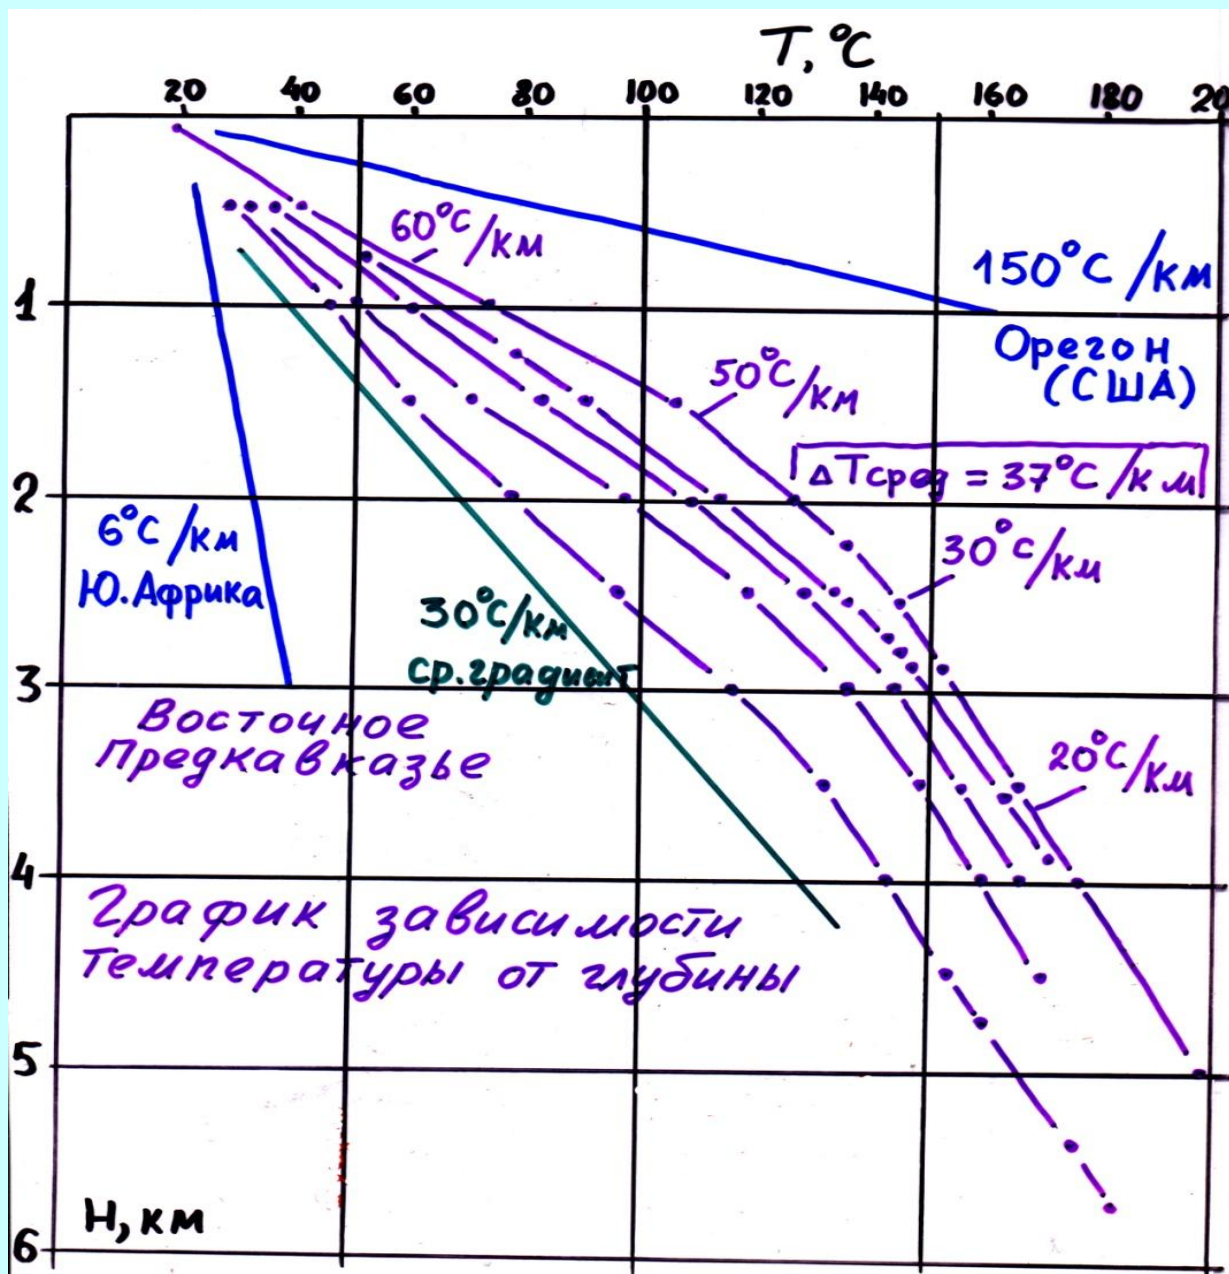 T, °C
20 40 60 80 100 120 140 160 180 20
60°C/км
150°C/км
Орегон
(США)
1
50°C/км
ΔTсред = 37°C/км
2
6°C/км
Ю. Африка
30°C/км
30°C/км
ср. градиент
3
Восточное
Предкавказье
20°C/км
4
График зависимости
температуры от глубины
5
H, км
6